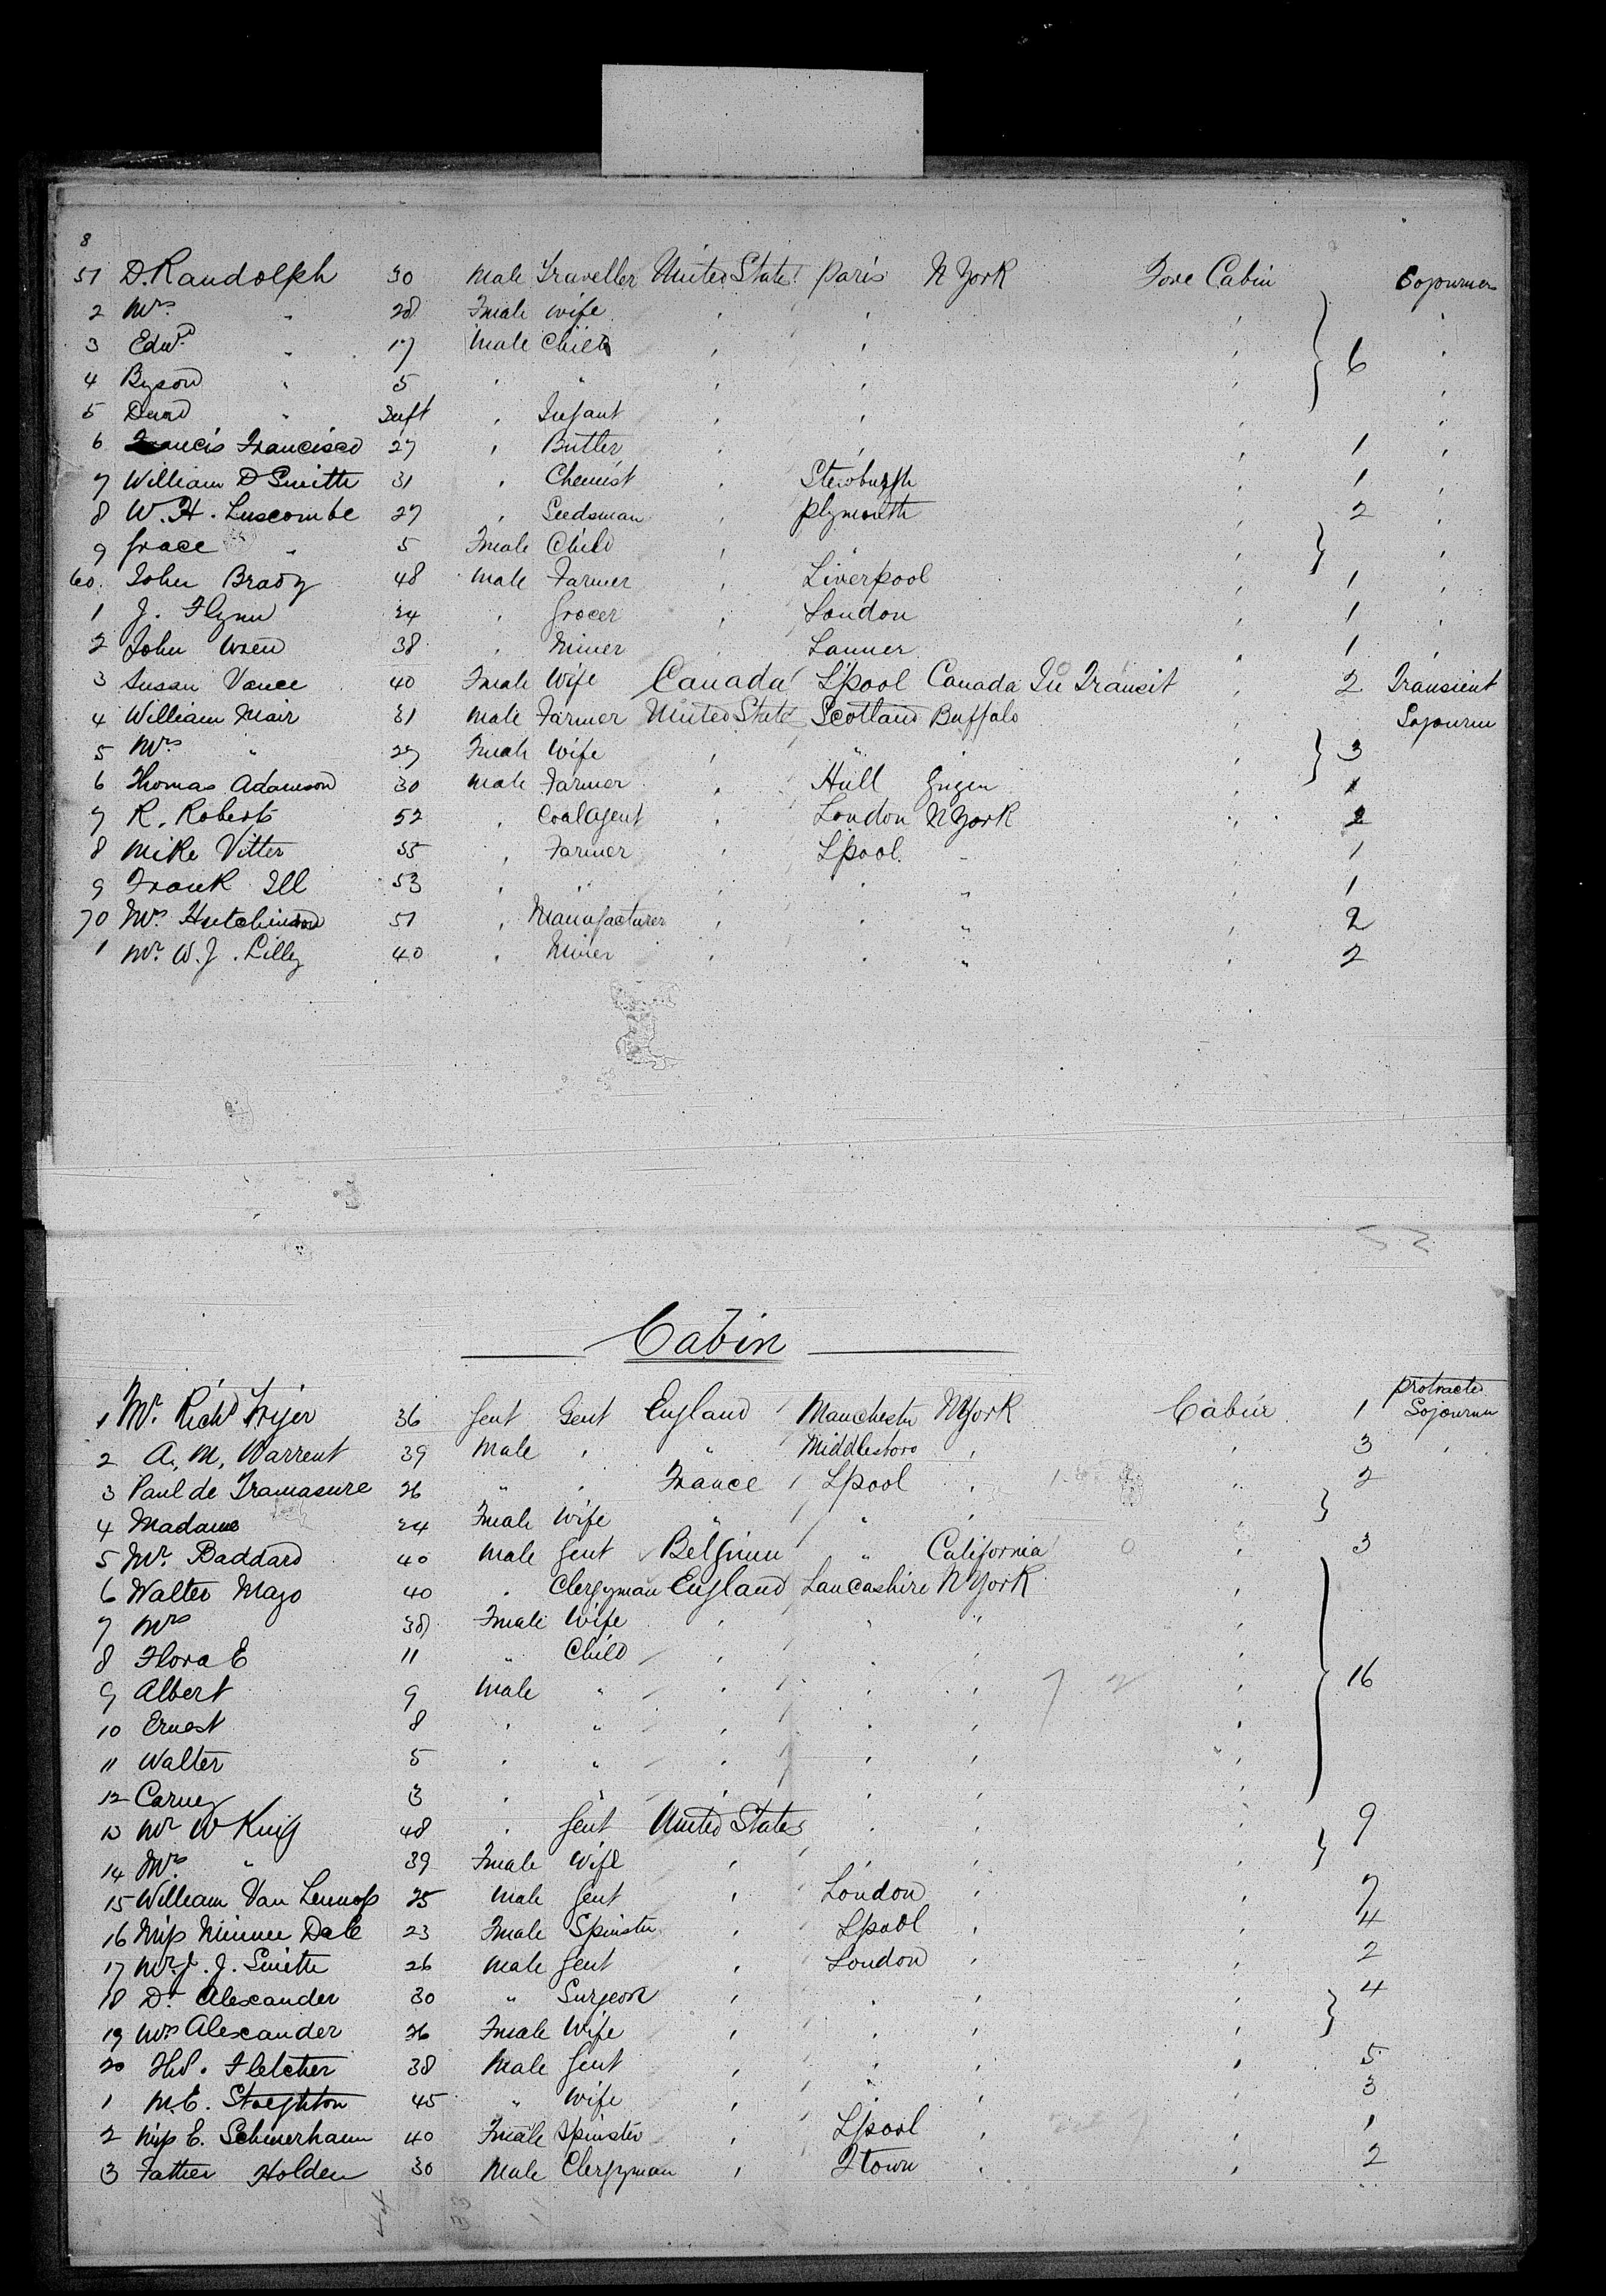 8
51 D. Randolph 30 Male Traveller United States Paris N York Fore Cabin Sojourner
2 Mrs " 28 Fmale Wife
3 Edwd " 17 Male Child 6
4 Byson " 5 " "
5 " Inft " Infant
6 Francis Francisco 27 " Butler 1
7 William D Smith 31 " Chemist 1
8 W. H. Luscombe 27 " Seedsman Plymouth 2
9 Grace " 5 Fmale Child
60. John Brady 48 Male Farmer Liverpool 1
1 J. Flynn 24 " Grocer London 1
2 John Wren 38 " Miner Lanner 1
3 Susan Vance 40 Fmale Wife Canada L'pool Canada In Transit 2 Transient
4 William Mair 31 Male Farmer United State Scotland Buffalo Sojourner
5 Mrs " 27 Fmale Wife " 3
6 Thomas Adamson 30 Male Farmer Hull 1
7 R. Roberts 52 " Coal Agent London N York 2
8 Mike Vitter 35 " Farmer L'pool 1
9 Frank Ill 53 " " " 1
70 Mr. Hutchinson 51 " Manufacturer " 2
1 Mr. W. J. Lilly 40 " Miner " 2
52
Cabin
1 Mr. Richd Fryer 36 Gent Gent England Manchestr N York Cabin 1 Protracted Sojourn
2 A. M. Warrent 39 Male " " Middlesboro " 3
3 Paul de Tramasure 26 " " France L'pool " 2
4 Madame 24 Fmale Wife " " "
5 Mr. Baddard 40 Male Gent Belgium " California 3
6 Walter Mayo 40 " Clergyman England Lancashire N York
7 Mrs 38 Fmale Wife " " "
8 Flora E 11 " Child " " "
9 Albert 9 Male " " " " 16
10 Ernest 8 " " " " "
11 Walter 5 " " " " "
12 Carney 3 " " " " "
13 Mr W King 48 " Gent United States " 9
14 Mrs " 39 Fmale Wife " " "
15 William Van Lennop 25 Male Gent " London " 7
16 Miss Minnie Dale 23 Fmale Spinster " L'pool " 4
17 Mr. J. J. Smith 26 Male Gent " London " 2
18 Dr Alexander 30 " Surgeon " " " 4
19 Mrs Alexander 26 Fmale Wife " " "
20 Fletcher 38 Male Gent " " " 5
1 M. E. Stoughton 45 " Wife " " " 3
2 Miss E. Schmerhaun 40 Fmale Spinster " L'pool " 1
3 Father Holden 30 Male Clergyman " Qtown " 2